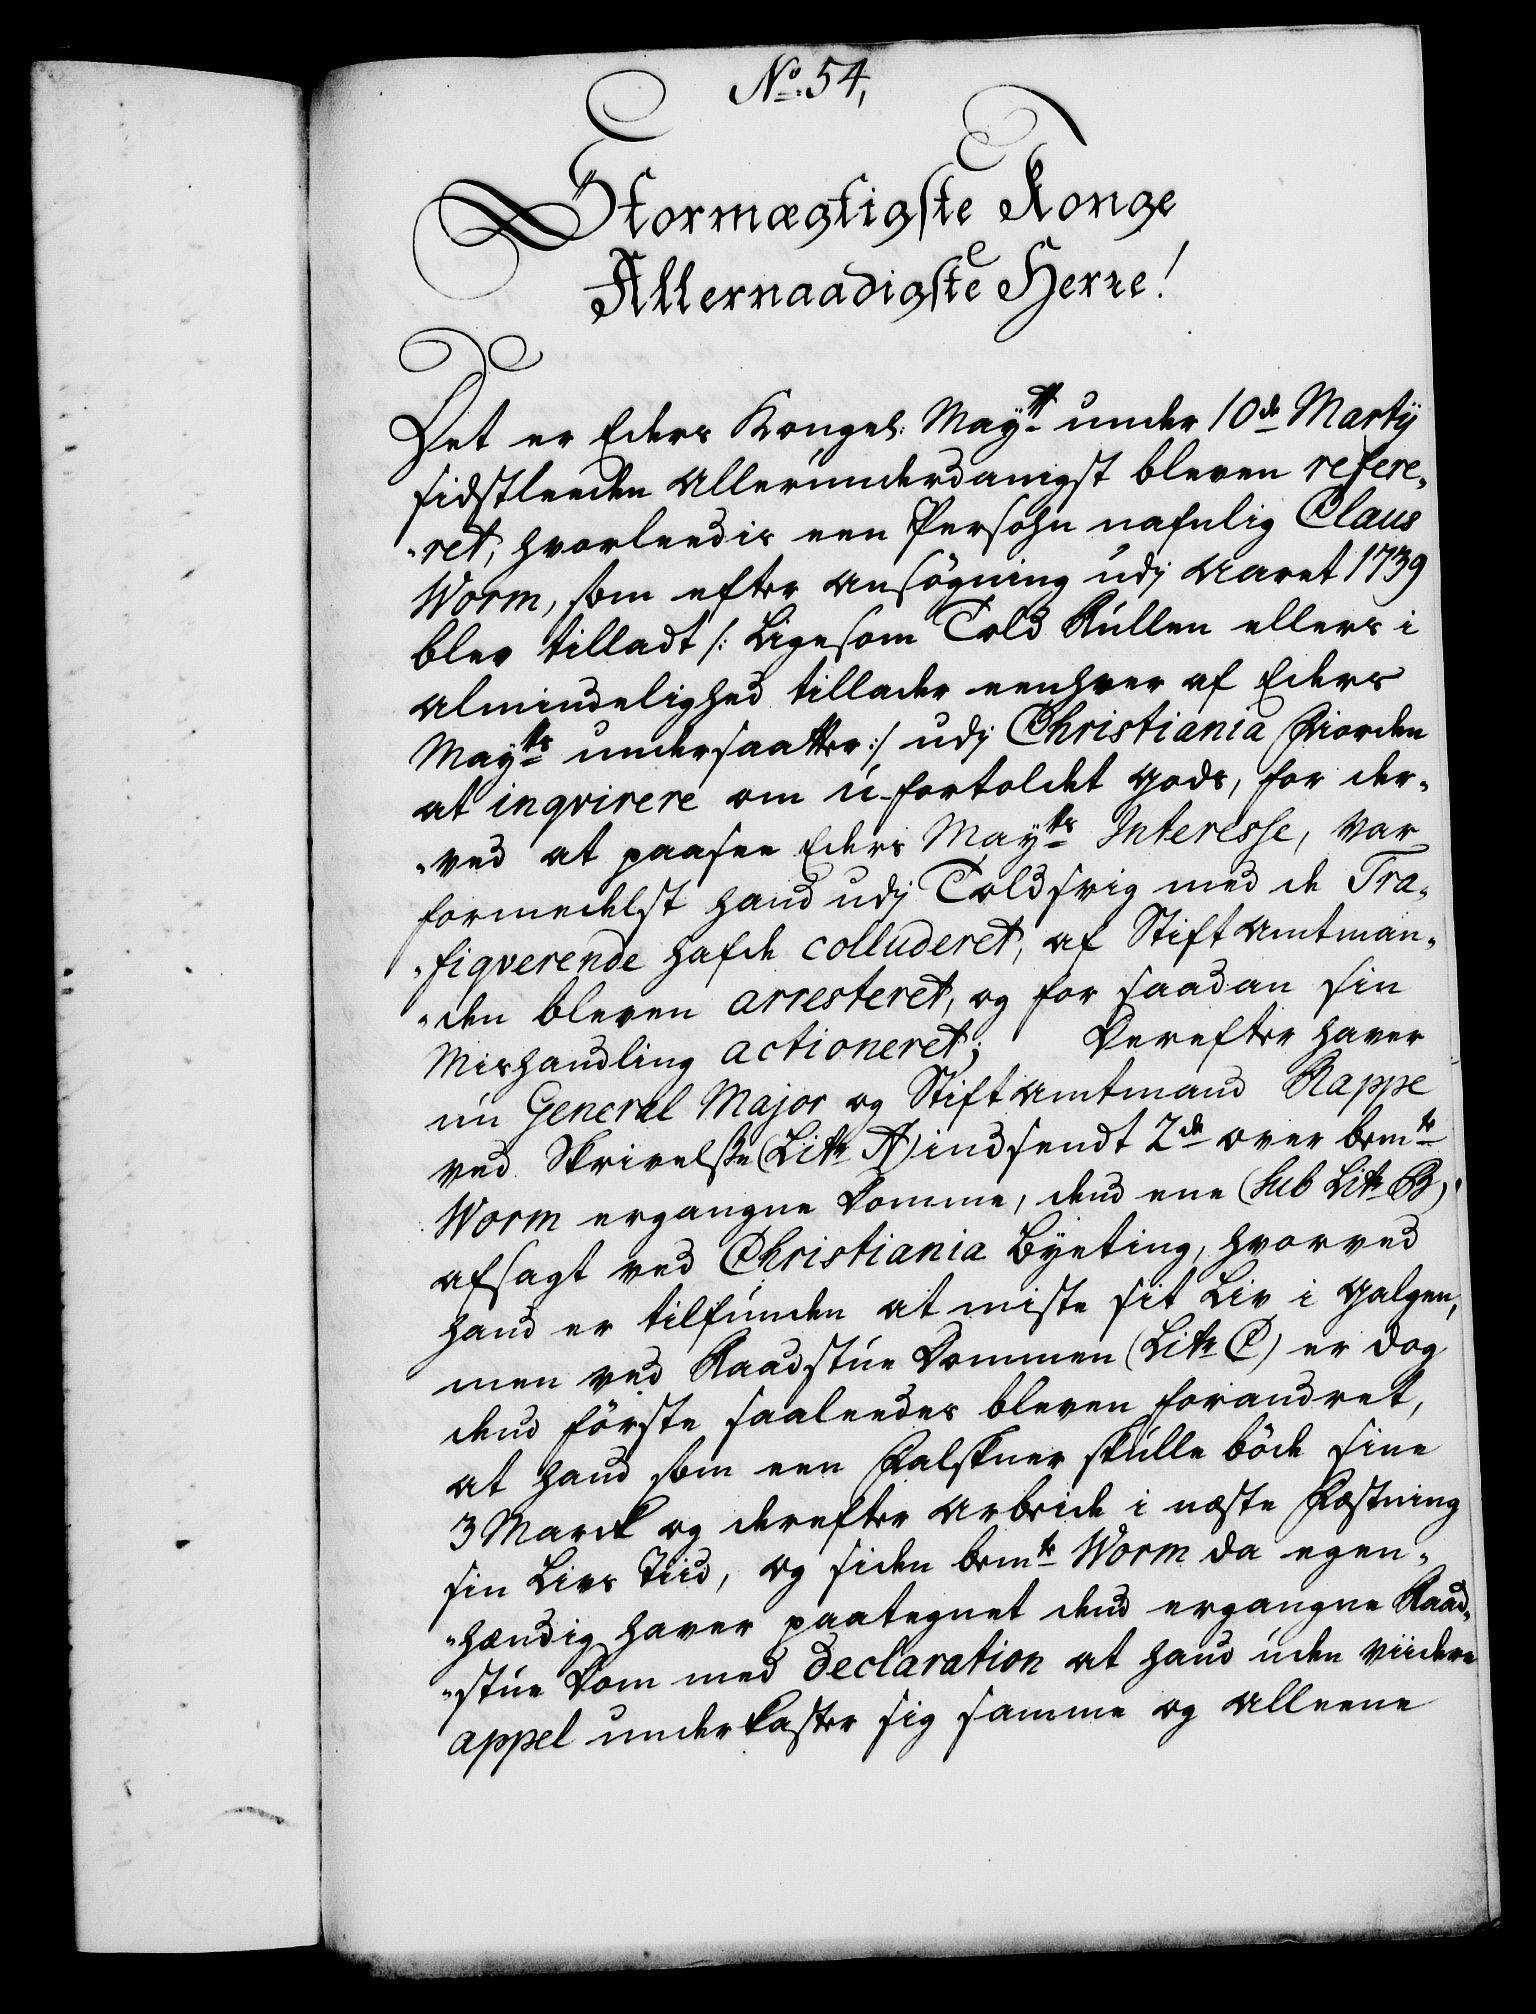 No. 54,
Stormægtigste Konge
Allernaadigste Herre!
Det er Eders Kongel: Maytt under 10de Martij
sidstleeden Allerunderdanigst bleven refere„
„ret, hvorleedis een Persohn nafnlig Claus
Worm, som efter Ansögning udj Aaret 1739
blev tilladt /: Ligesom Told Rullen ellers i
Almindelighed tillader eenhver af Eders
Maytts undersaatter :/ udj Christiania Fiorden
at inqvirere om u-fortoldet Gods, for der„
„ved at paasee Eders Maytts Interesse, var
formedelst hand udj Toldsvig med de Tra„
„fiqverende hafde colluderet, af Stiftamtman„
„den bleven arresteret, og for saadan sin
Mishandling actioneret; Derefter haver
nu General Major og Stiftamtmand Rappe
ved Skrivelse (Litr A) indsendt 2de over bemte
Worm ergangne Domme, dend ene (sub Litr B)
afsagt ved Christiania Byeting, hvorved
hand er tilfunden at miste sit Liv i Galgen,
men ved Raadstue Dommen (Litr C) er dog
dend förste saaleedes bleven forandret,
at hand som een Falskner skulle böde sine
3 Marck og derefter Arbeide i næste Fæstning
sin Livs Tiid, og siden bemte Worm da egen„
„hændig haver paategnet dend ergangne Raad„
„stue Dom med Declaration at hand uden viidere
appel underkaster sig samme og alleene